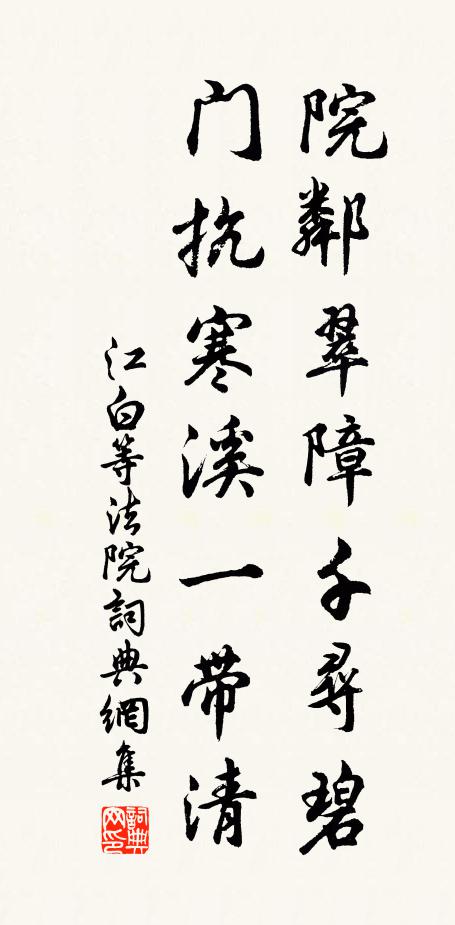 院鄰翠障千尋碧
門抗寒溪一帶清
江白等法院詞典網集
詞典网印